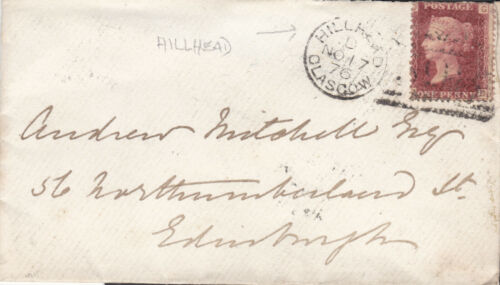 HILLHEAD
HILLHEAD
D
NO 17
76
GLASGOW
POSTAGE
ONE PENNY
Andrew Mitchell Esq
56 Northumberland St.
Edinburgh